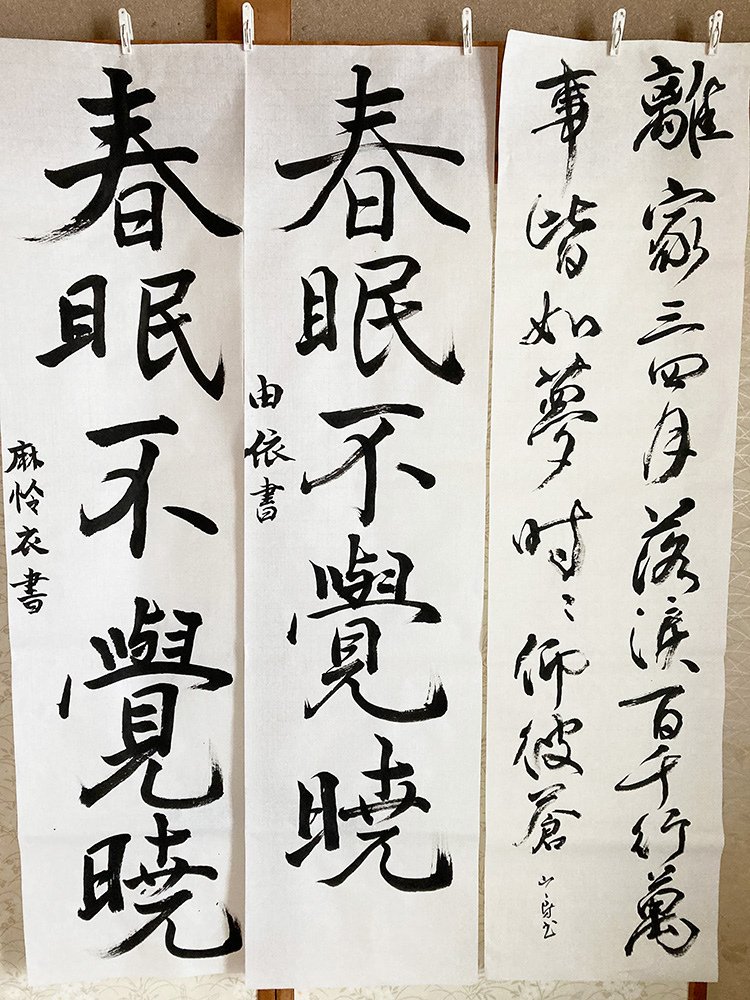 離家三四月落涙百千行萬
事皆如夢時〻仰彼蒼
春眠不覺暁
由依書
春眠不覺暁
麻怜衣書